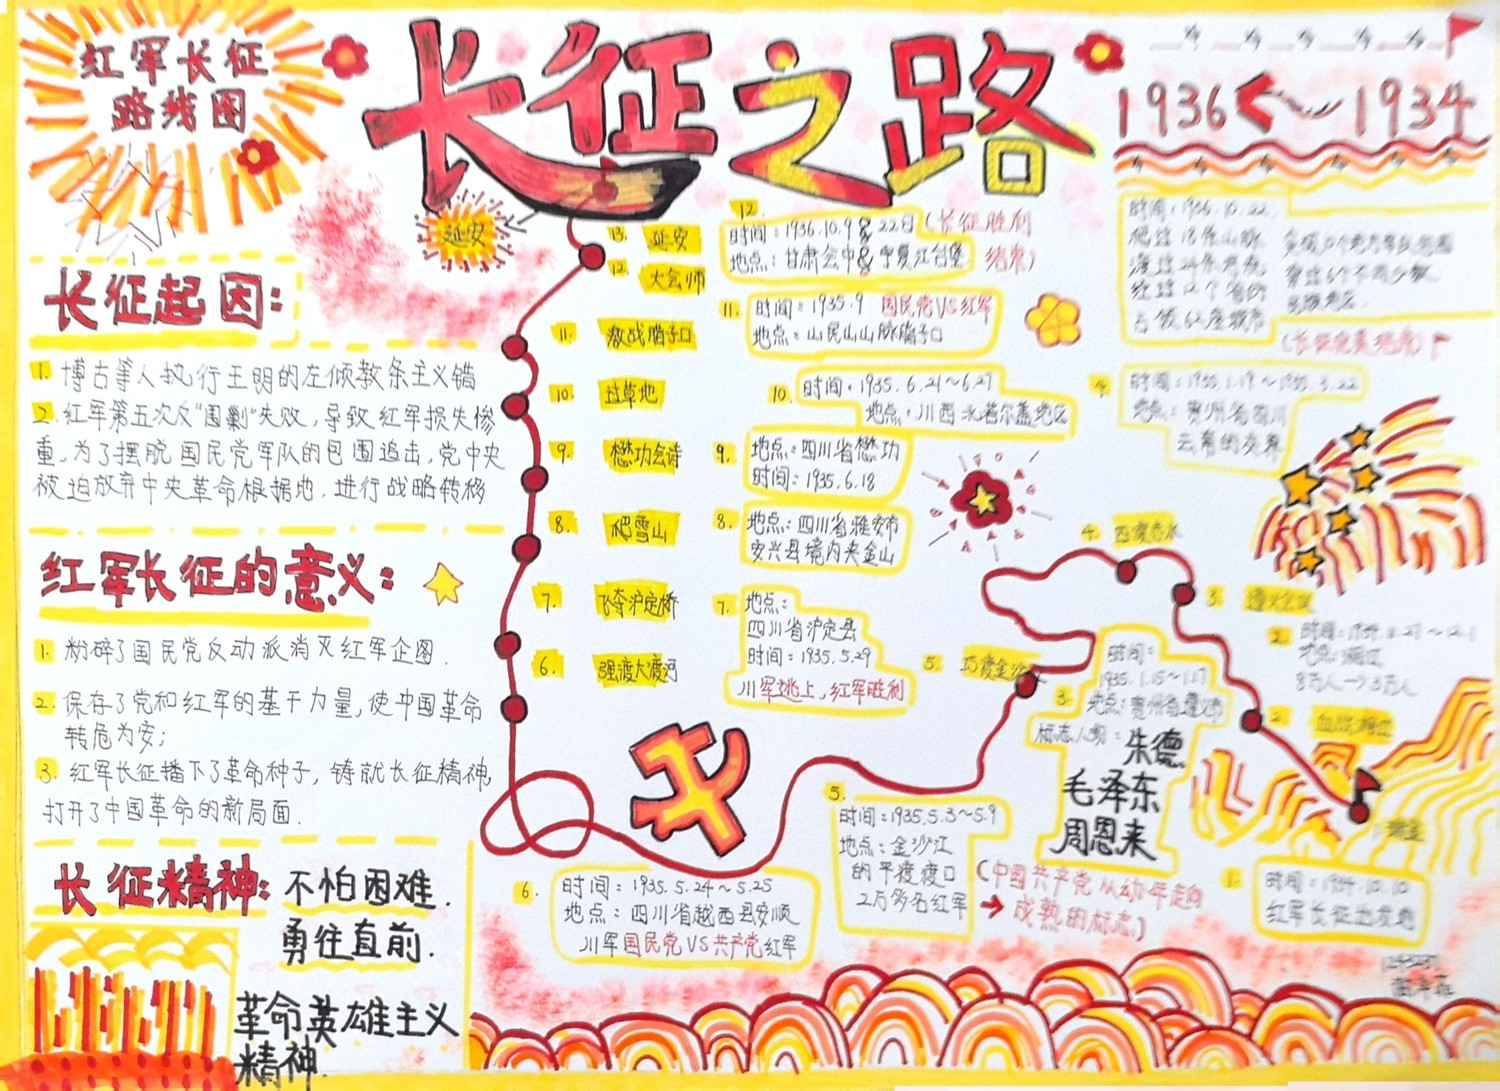 红军长征
路线图
长征之路
1936 1934
长征起因:
1. 博古等人执行王明的左倾教条主义错
2. 红军第五次反"围剿"失败,导致红军损失惨
重,为了摆脱国民党军队的包围追击,党中央
被迫放弃中央革命根据地,进行战略转移
红军长征的意义:
1. 粉碎了国民党反动派消灭红军企图.
2. 保存了党和红军的基干力量,使中国革命
转危为安;
3. 红军长征播下了革命种子,铸就长征精神,
打开了中国革命的新局面.
长征精神: 不怕困难.
勇往直前.
革命英雄主义
精神.
延安
13. 延安
12. 大会师
11. 激战腊子口
10. 过草地
9. 懋功会诗
8. 爬雪山
7. 飞夺沪定桥
6. 强渡大渡河
12.
时间:1936.10.9& 22日(长征胜利
地点:甘肃会中&宁夏江台堡. 结束)
11. 时间:1935.9 国民党VS红军
地点:山民山山脉腊子口
10. 时间:1935.6.21~6.27
地点:川西北若尔盖地区
9. 地点:四川省懋功
时间:1935.6.18
8. 地点:四川省雅安市
安兴县境内夹金山
7. 地点:
四川省沪定县
时间:1935.5.29
川军逃上,红军胜利
6. 时间:1935.5.24~5.25
地点:四川省越西县安顺
川军国民党VS共产党红军
5. 巧渡金沙
5.
时间:1935.5.3~5.9
地点:金沙江
的平渡渡口
2万多名红军
(中国共产党从幼年走向
成熟的标志)
时间:1936.10.22.
爬过18条山脉
渡过24条河流
红过12个省份
占领62座城市
4. 时间:1935.1.19~1935.3.22
地点:贵州省四川
云南的交界
4. 四渡赤水
3. 遵义会议
时间:
1935.1.15~1.17
3. 地点:贵州省遵义市
标志人物:朱德
毛泽东
周恩来
2. 时间:1934.11.27~12.1
地点:湘江
8万人→3万人
2. 血战湘江
1. 瑞金
1. 时间:1934.10.10
红军长征出发地